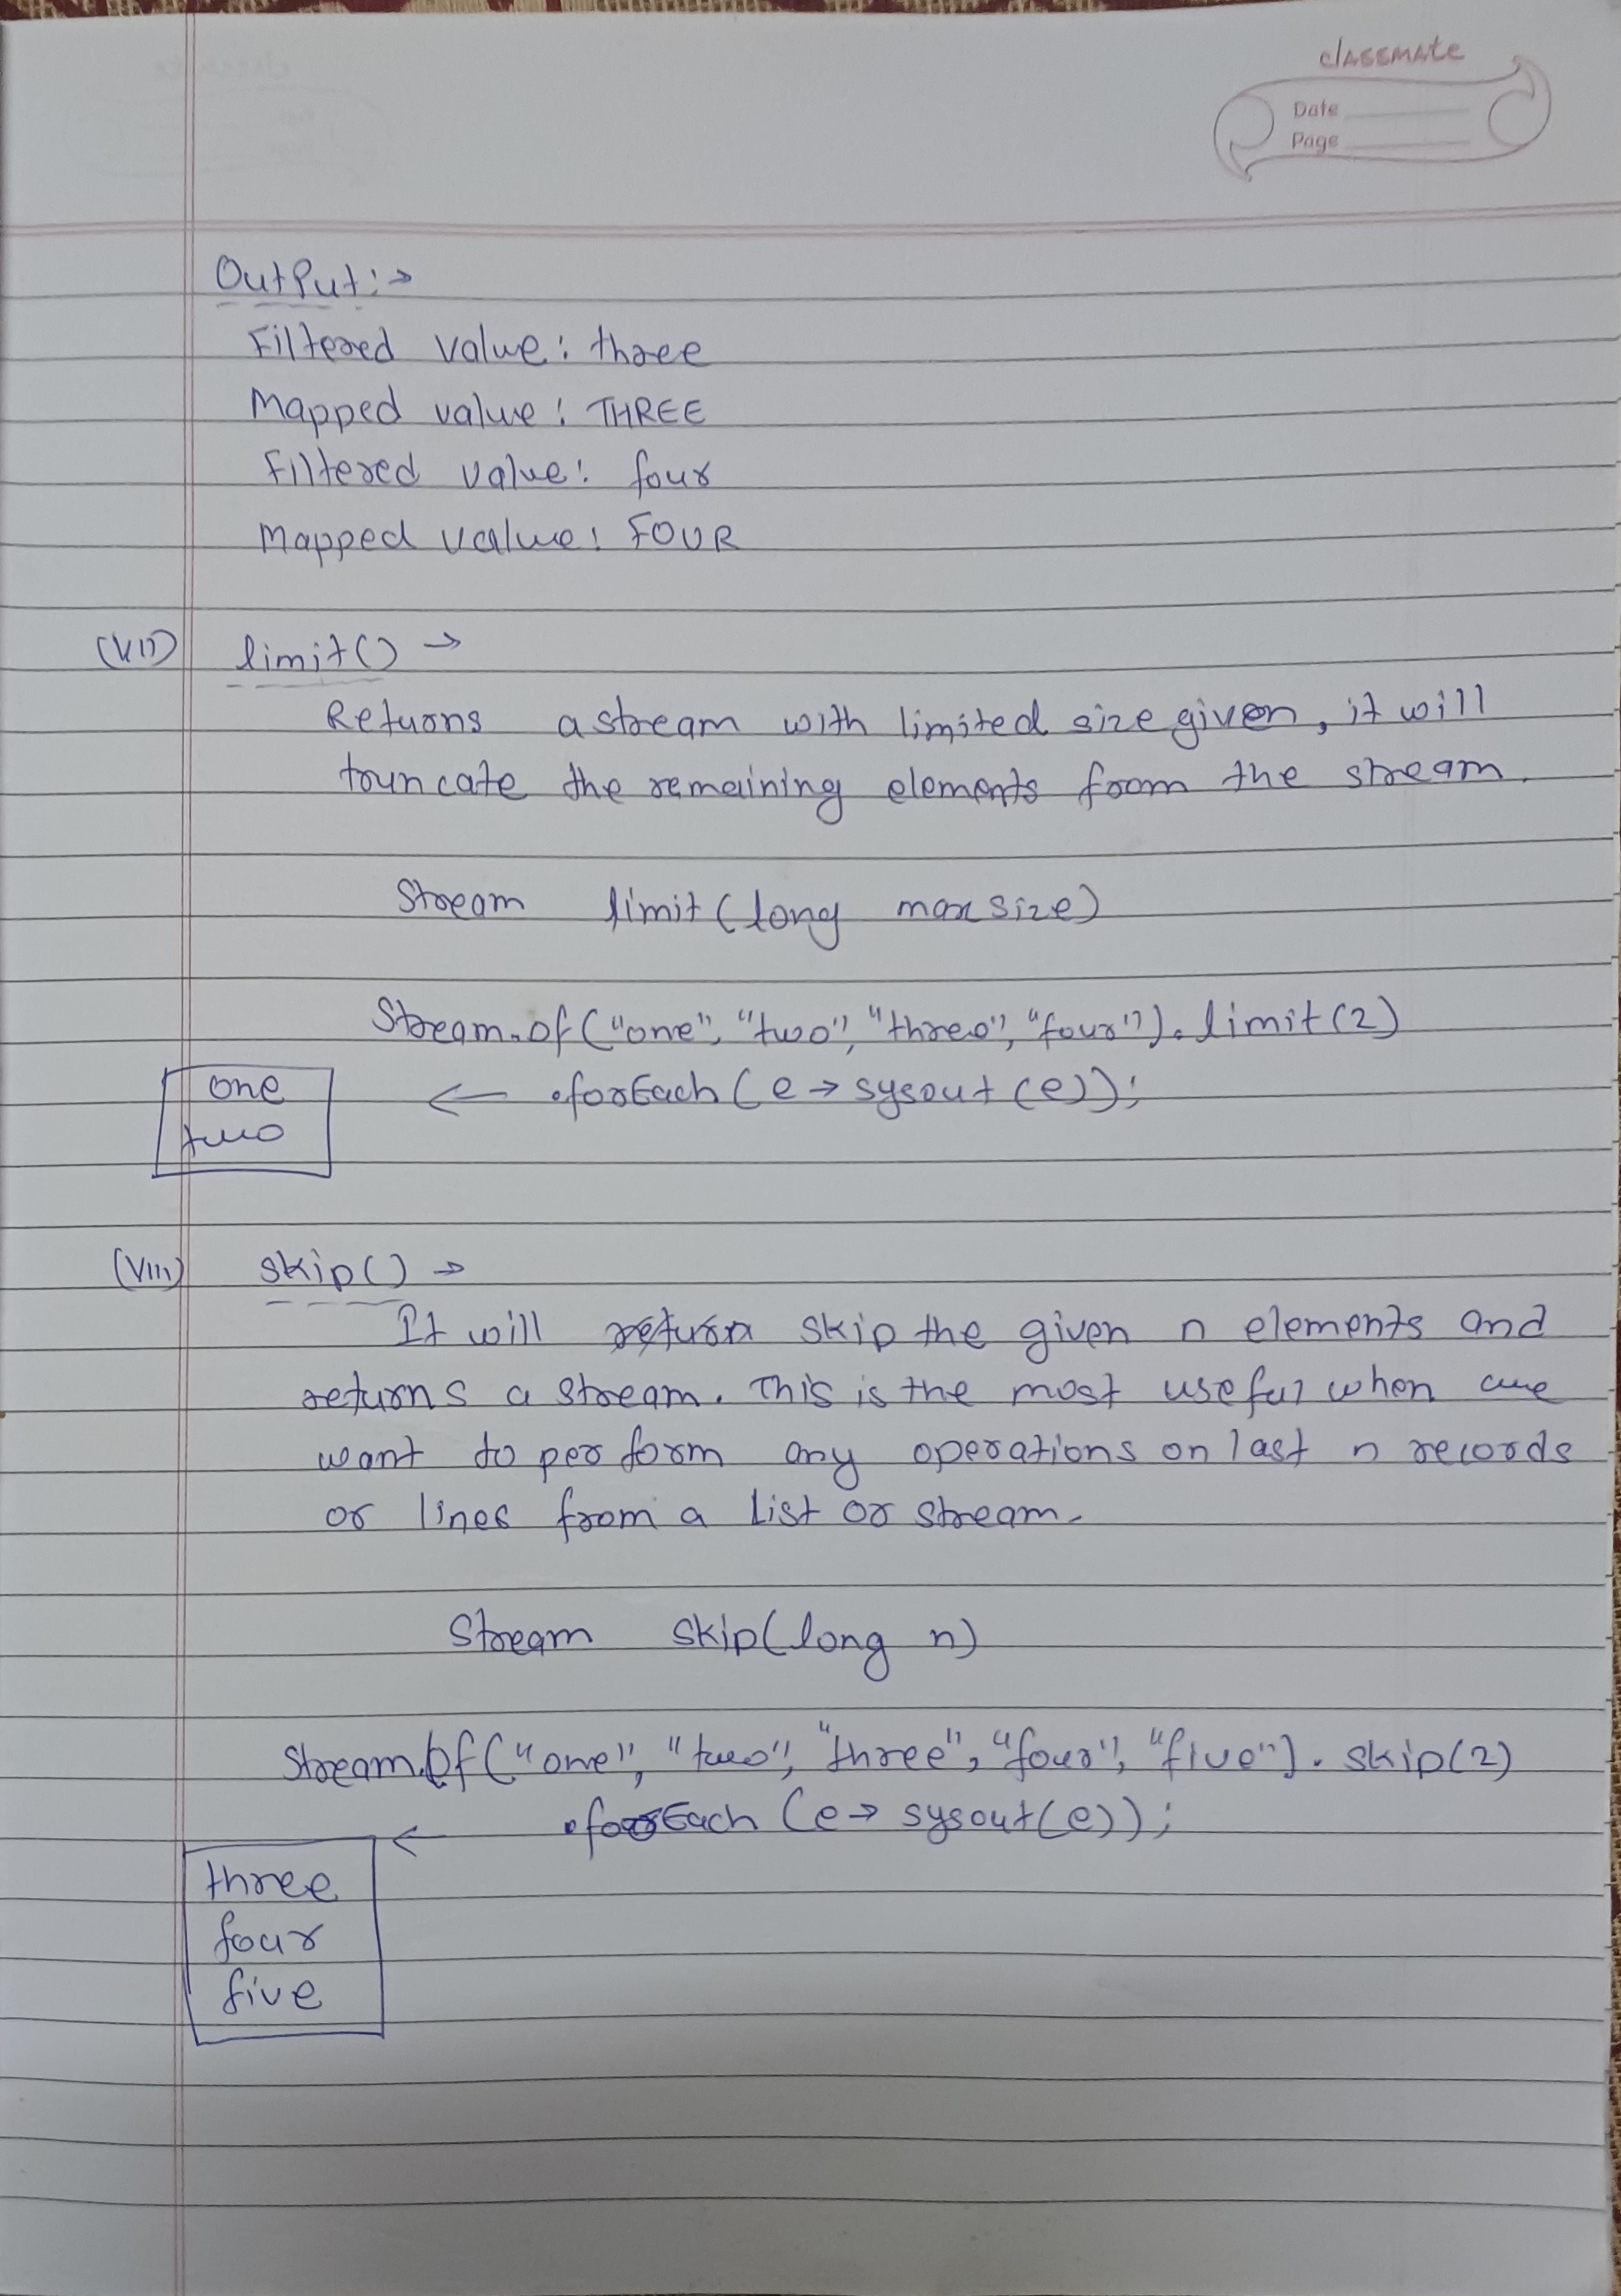 classmate
Date
Page
OutPut:→
Filtered value: three
Mapped value: THREE
Filtered value: four
Mapped value: FOUR
(VII) limit() →
Returns a stream with limited size given, it will
truncate the remaining elements from the stream.
Stream limit(long maxsize)
Stream.of("one", "two", "three", "four").limit(2)
← .forEach(e→sysout(e));
one
two
(VIII) skip() →
It will return skip the given n elements and
returns a stream. This is the most useful when we
want to perform any operations on last n records
or lines from a List or stream.
Stream skip(long n)
Stream.of("one", "two", "three", "four", "five").skip(2)
← .forEach(e→sysout(e));
three
four
five